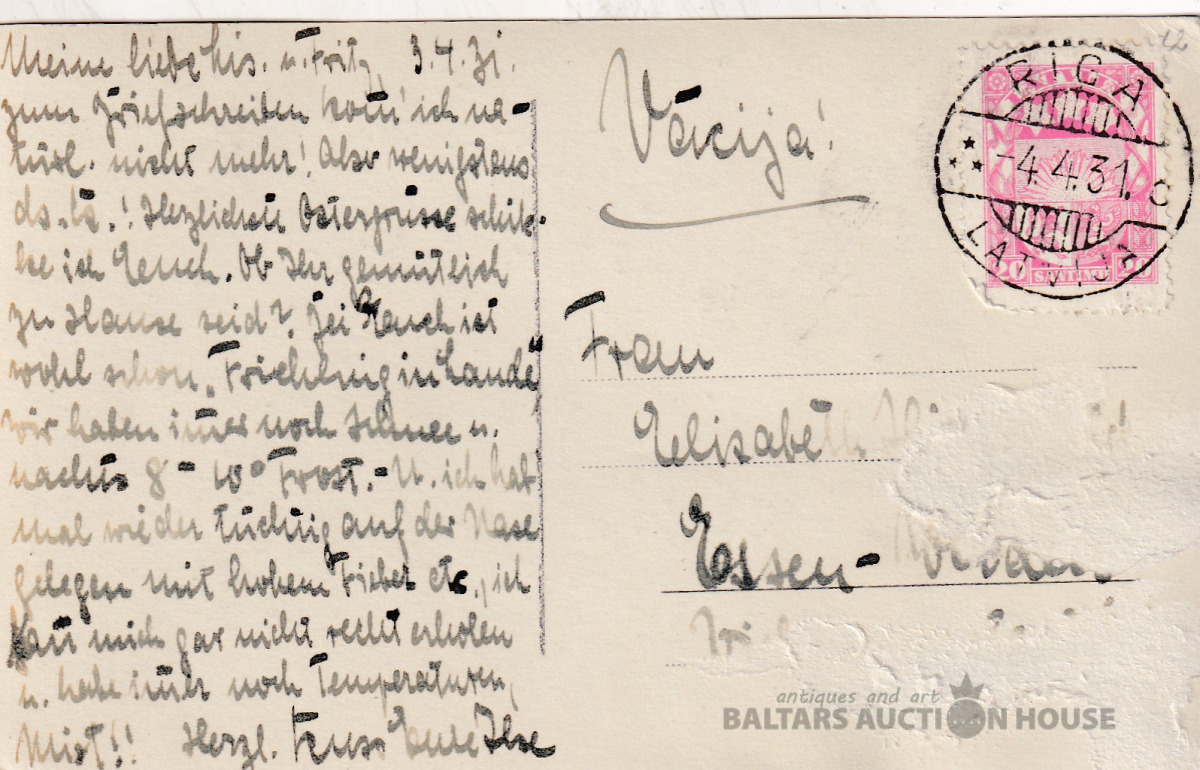 Meine liebe Lis. u. Fritz, 3.4.31.
zum Briefschreiben kom̄' ich na-
türl. nicht mehr! Aber wenigstens
ds. Ls.! Herzlichen Ostergrüsse schik-
ke ich Euch. Ob Ihr gemütlich
zu Hause seid? Bei Euch ist
wohl schon „Frühling im Lande"
wir haben im̄er noch Schnee u.
nachts 8–10° Frost.- U. ich hab'
mal wieder tüchtig auf der Nase
gelegen mit hohem Fieber etc., ich
kan̄ mich gar nicht recht erholen
u. habe im̄er noch Temperaturen,
Mist!! Herzl. Kuss Eure Ilse
Vācija!
RIGA
-4.4.31. C
LATVIJA
LATVIJA
20 SANTIMU 20
12
Frau
Elisabeth
Essen-
antiques and art
BALTARS AUCTION HOUSE